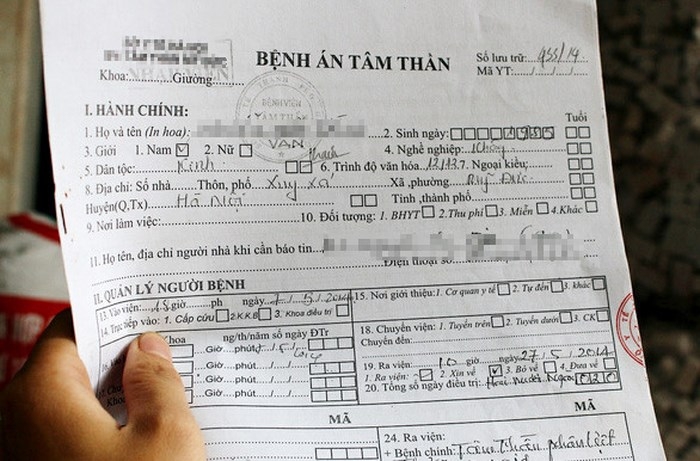 BỆNH ÁN TÂM THẦN
Số lưu trữ: 955/14
Khoa: Giường: Mã YT:
BỆNH VIỆN
TÂM THẦN
I. HÀNH CHÍNH: Tuổi
1. Họ và tên (In hoa) VẠN 2. Sinh ngày: 1985
3. Giới 1. Nam 2. Nữ 4. Nghề nghiệp: Không
5. Dân tộc: Kinh 6. Trình độ văn hóa 12/12 7. Ngoại kiều:
8. Địa chỉ: Số nhà Thôn, phố Xuy xá Xã, phường
Huyện(Q,Tx) Hà Nội Tỉnh, thành phố
9. Nơi làm việc: 10. Đối tượng: 1. BHYT 2. Thu phí 3. Miễn 4.Khác
11. Họ tên, địa chỉ người nhà khi cần báo tin
Điện thoại số
II. QUẢN LÝ NGƯỜI BỆNH
13. Vào viện: 15 giờ ph ngày 7/5/2014 15. Nơi giới thiệu: 1. Cơ quan y tế 2. Tự đến 3. khác
14. Trực tiếp vào: 1. Cấp cứu 2.K.K.B 3. Khoa điều trị
Khoa ng/th/năm số ngày ĐTr 18. Chuyển viện: 1. Tuyến trên 2. Tuyến dưới 3. CK
Giờ phút Chuyển đến:
Giờ phút 19. Ra viện: 10 giờ ngày 27/5/2014
Giờ phút 1. Ra viện: 2. Xin về 3. Bỏ về 4.Đưa về
Giờ phút 20. Tổng số ngày điều trị: Hai mươi ngày 020
Khoa
MÃ MÃ
24. Ra viện:
+ Bệnh chính: Tâm thần phân liệt